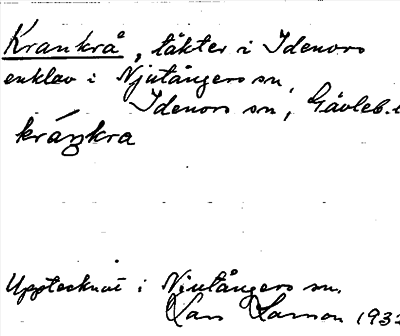 Krankrå, täkter i Idenors
enklav i Njutångers sn,
Idenors sn, Gävleb. l
kráŋkra
Upptecknat i Njutångers sn.
Lars Larson 1932